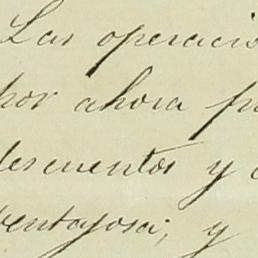 Las operacio
por ahora pr
descuentos y
ventajosa; y